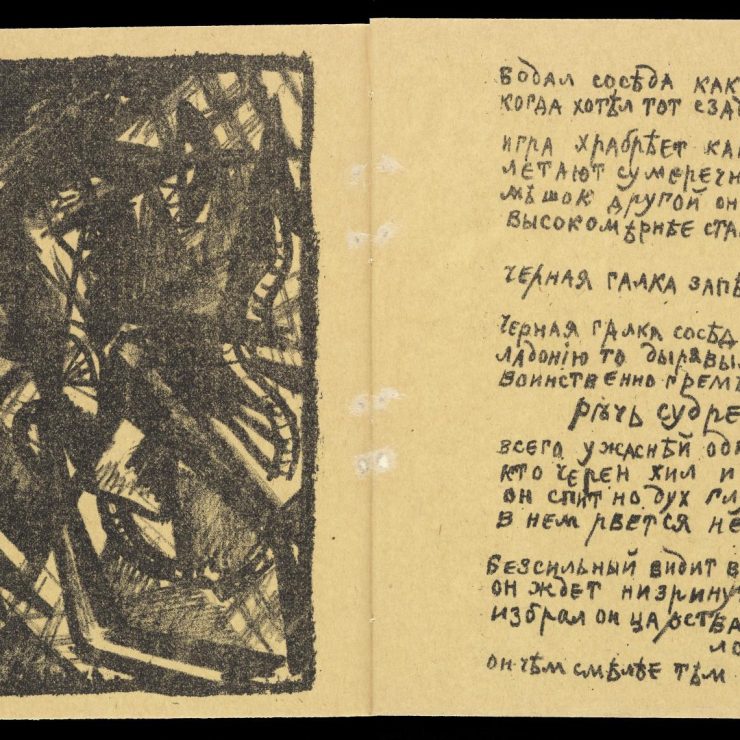 бодал сосѣда как
когда хотѣл тот сзад
игра храбрѣет ка
летают сумеречн
мѣшок другой он
высокомѣрнѣе ста
черная галка запѣ
черная галка сосѣд
ладонію то дырявы
воинственно грем
рѣчь судре
всего ужаснѣй од
кто черен хил и
он спит но дух гл
в нем рвется не
безсильный видит в
он ждет низрину
избрал он царства
ло
он чѣм смѣлѣе тѣм